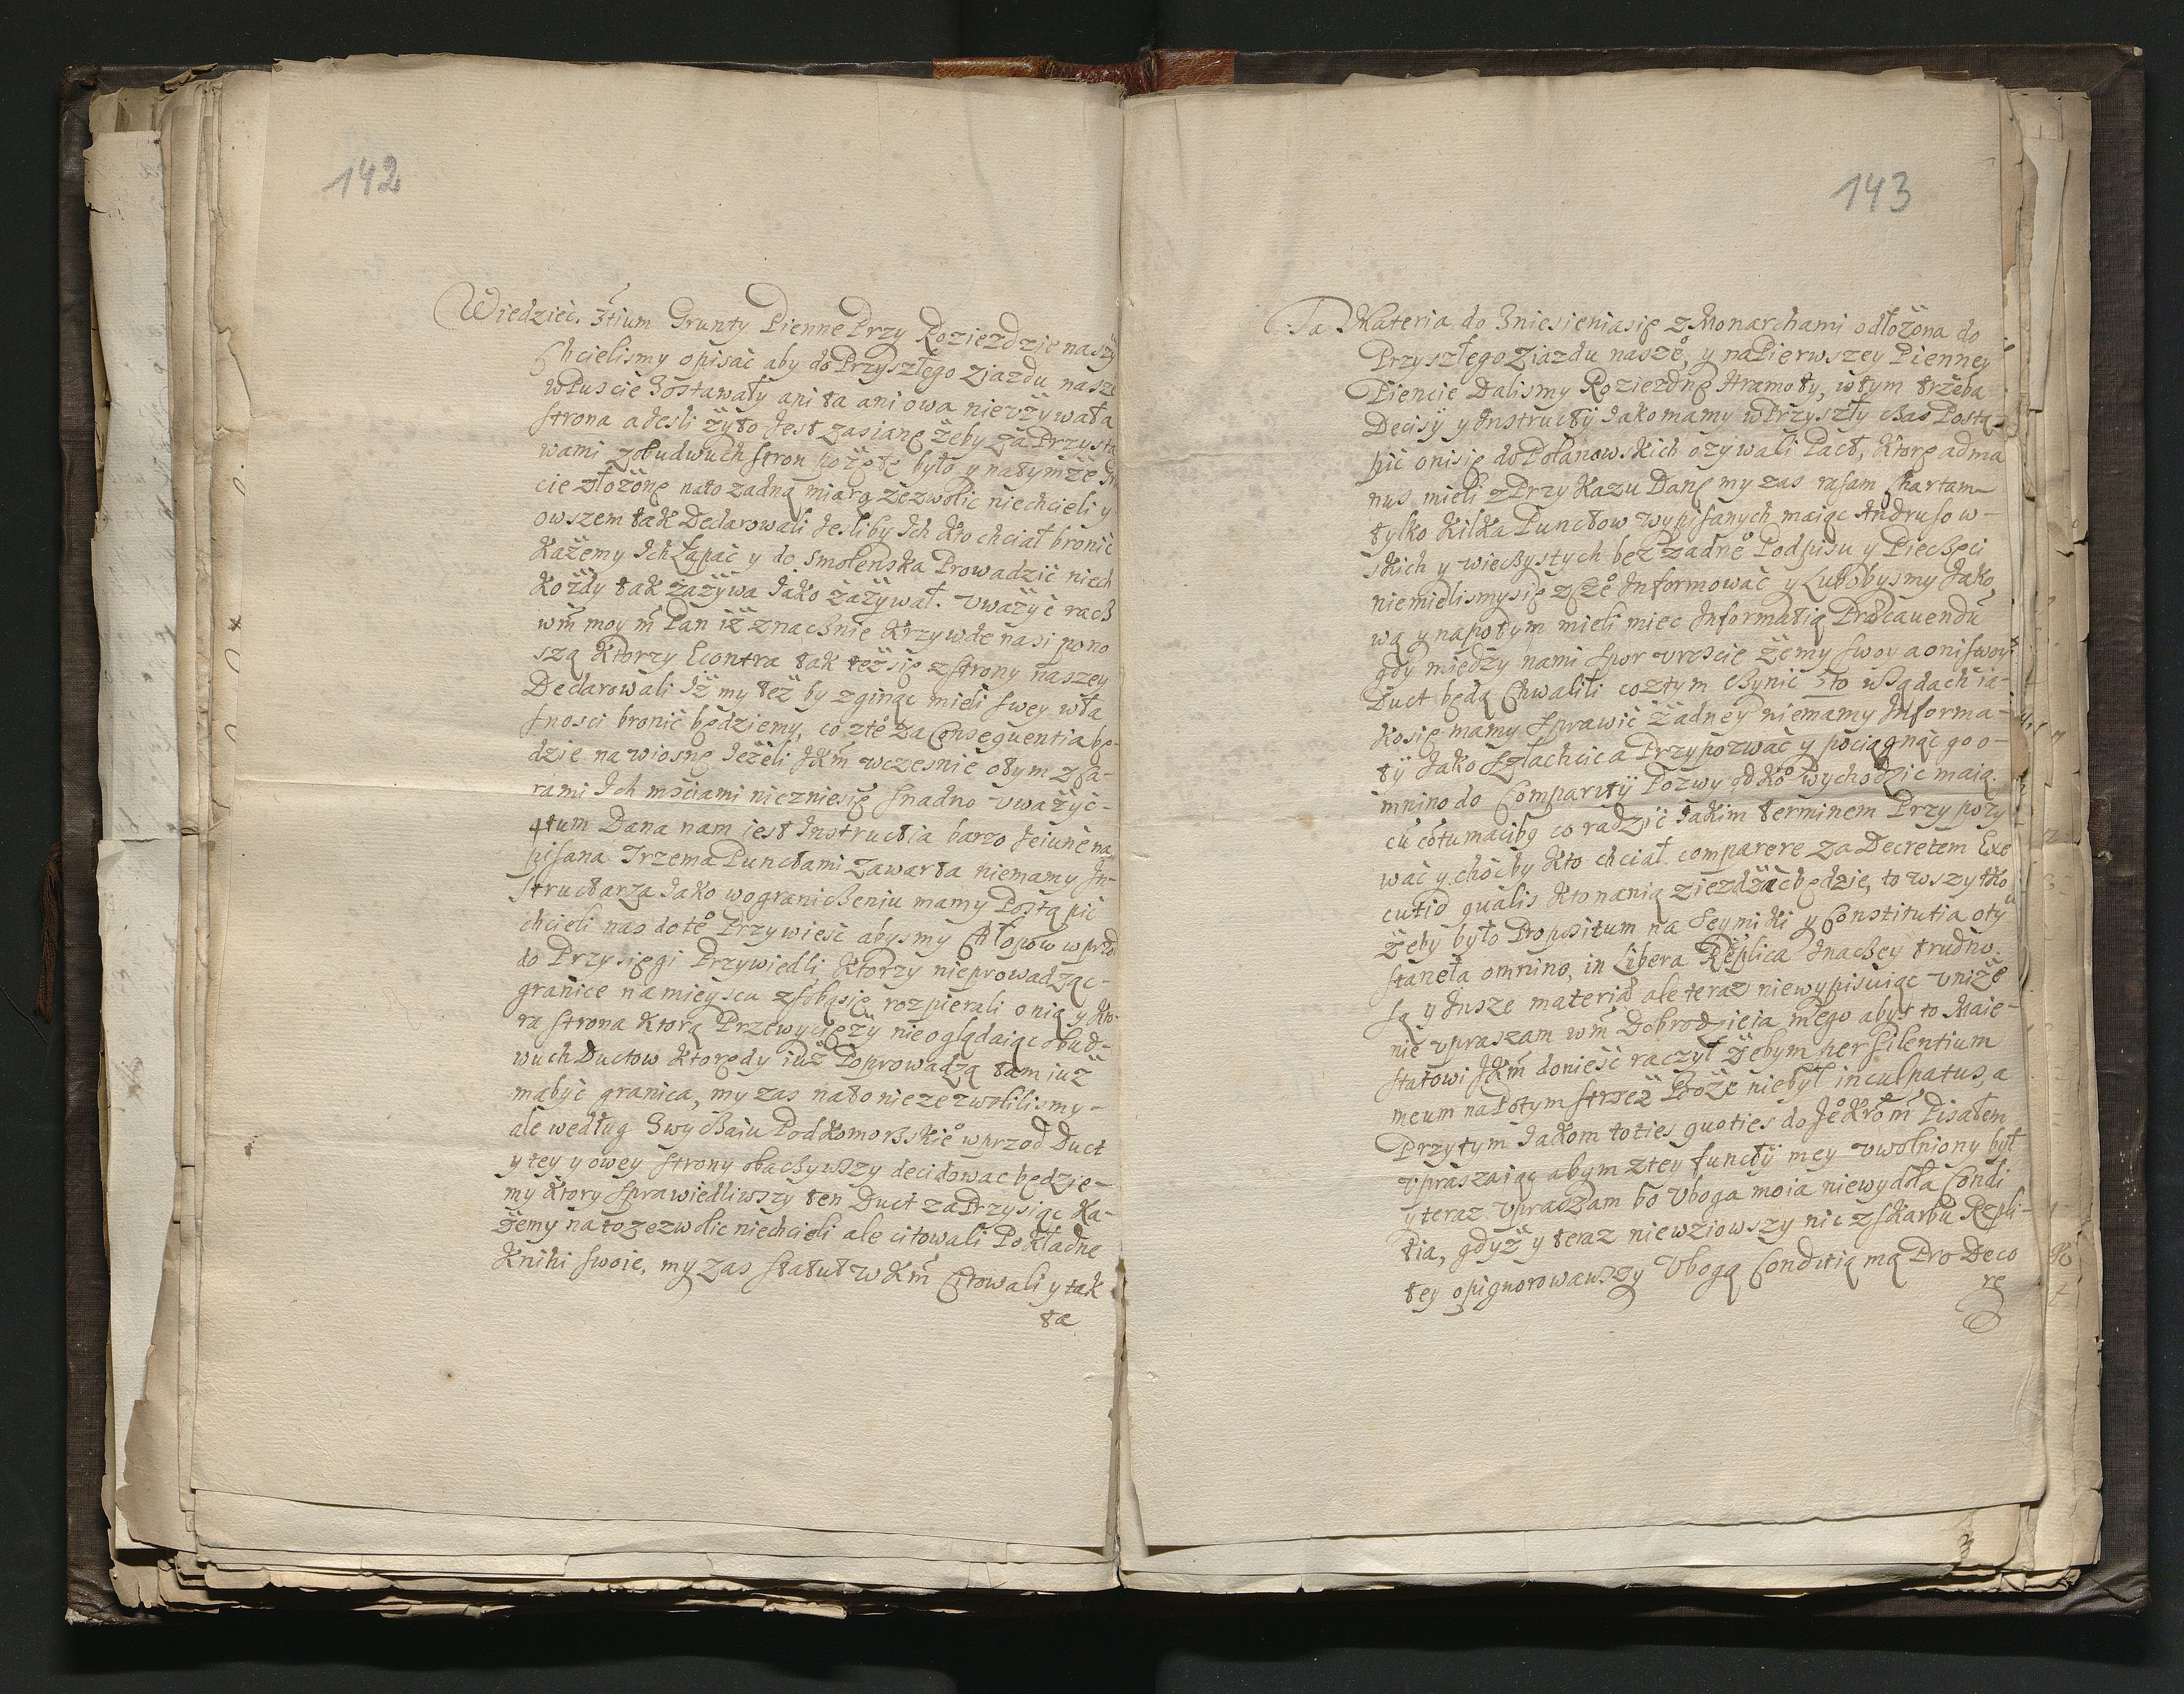 142
Wiedziec. 3tium Grunty Pienne Przy Rozieździe naszy
Chcielismy opisać aby do Przyszłego zjazdu nasze
w Puscie Zostawały ani ta ani owa nieużywała
strona a Jesli żyto Jest zasiane żeby za Przysta
wami z obudwuch stron pożęte było y natymże
cie złożone nato zadną miarą zezwolic niechcieli y
owszem tak Declarowali Jesliby Ich Kto chciał bronić
Każemy Ich Łapać y do Smolenska Prowadzić niech
Kożdy tak zażywa Jako zażywał. Uważyć racz
wm moy m Pan iż znacznie Krzywde nasi pono
szą Ktorzy Econtra tak też się z strony naszey
Declarowali Iż my też by zginąc mieli swey wła
snosci bronić będziemy, co zte za Consequentia bę-
dzie na wiosnę Jeżeli JKm wczesnie otym z Ca-
rami Ich mściami niezniesię snadno uważyć-
4tum Dana nam iest Instructia barzo Jeiune na
pisana Trzema Punctami zawarta niemamy In-
structarza Jako w ograniczeniu mamy Postąpić
chcieli nas do te Przywieść abysmy Chłopow wprzod
do Przysięgi Przywiedli Ktorzy nieprowadząc-
granice na mieyscu z sobąsię rozpierali o nią y Kto-
ra strona Ktorą Przewycięży nieoglądaiąc obud-
wuch Ductow Ktorędy iuż Poprowadzą tam iuż
mabyć granica, my zas nato niezezwolilismy-
ale według Zwyczaiu Podkomorskie wprzod Duct
y tey y owey strony obaczywszy decidowac będzie-
my Ktory sprawiedliwszy ten Duct zaPrzysiąc Ka-
żemy na to zezwolic niechcieli ale citowali Pokładne
Knihi swoie, my zas statut w Km Citowali y tak
ta
143
Ta Materia do Zniesieniasię z Monarchami odłożona do
Przyszłego Zjazdu nasze, y na Pierwszey Pienney
Piencie Dalismy Rozieżdne Hramoty, wtym trzeba
Decisy y Instructy Jako mamy w Przyszły czas Postą-
pic onisię do Polanowskich ozywali Pact, Ktore adma
nus mieli z Przykazu Dane my zas rasam Chartam-
tylko Kilka Punctow wypisanych maiąc Andrusow-
skich y wieczystych bez zadne Podpisu y Pieczęci
niemielismysię z cze Informować y Lubobysmy Jako
wą y napotym mieli miec Informatią Praecavendu
gdy między nami spor uroście żemy swoy a oni swoy
Duct będą Chwalili co ztym czynić 5to w Sądach ia-
kosię mamy sprawić żadney niemamy Informa-
ty Jako Szlachcica Przypozwać y pociągnąć go o-
mnino do Comparity Pozwy od Ko wychodzić maią
cu cotumacibg co radzić Jakim terminem Przypozy
wać y choćby Kto chciał comparere za Decretem Exe
cutio qualis Kto nanią zieżdżac będzie, to wszytko
żeby było Propositum na Seymiki y Constitutia oty
staneła omnino, in Libera Replica Inaczey trudno.
Są y Insze materiae ale teraz niewypisuiąc uniże
nie upraszam wm Dobrodzieia mego abyś to Maie-
statowi JKm donieść raczył żebym per silentium
meum na Potym strzeż Boże niebył inculpatus, a
Przytym Jakom toties quoties do Je Kro m Pisałem
upraszaiąc abym z tey functy mey uwolniony był
y teraz upraszam bo Uboga moia niewyddła Condi
tia, gdyż y teraz niewziowszy nic z skarbu Rzpli-
tey opignorowawszy Ubogą Conditią mą Pro Deco
re